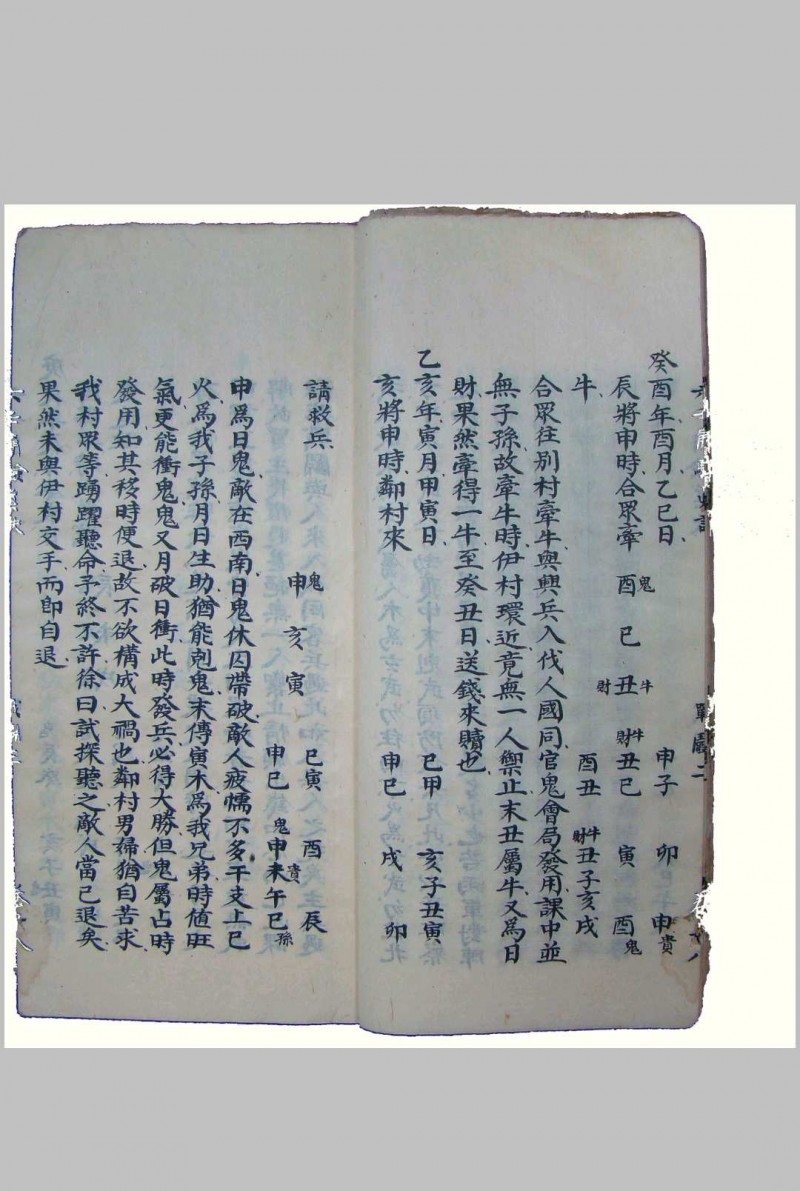 癸酉年酉月乙巳日
辰將申時合眾牽
牛
鬼
酉 巳 丑
牛
財
申子 卯 申貴
財牛
丑巳 寅 酉鬼
酉丑
財牛
丑子亥戌
合眾往別村牽牛與興兵入伐人國同官鬼會局發用課中並
無子孫故牽牛時伊村環近竟無一人禦止末丑屬牛又為日
財果然牽得一牛至癸丑日送錢來贖也
乙亥年寅月甲寅日
亥將申時鄰村來
巳甲 亥子丑寅
申巳 戌 卯
請救兵
鬼
申 亥 寅
巳寅 酉 辰
申巳
鬼 貴
申未午巳孫
申為日鬼敵在西南日鬼休囚帶破敵人疲懦不多干支上巳
火為我子孫月日生助猶能剋鬼末傳寅木為我兄弟時值旺
氣更能衝鬼鬼又月破日衝此時發兵必得大勝但鬼屬占時
發用如其移時便退故不欲構成大禍也鄰村男婦猶自苦求
我村眾等踴躍聽命予終不許徐曰試探聽之敵人當已退矣
果然未與伊村交手而即自退